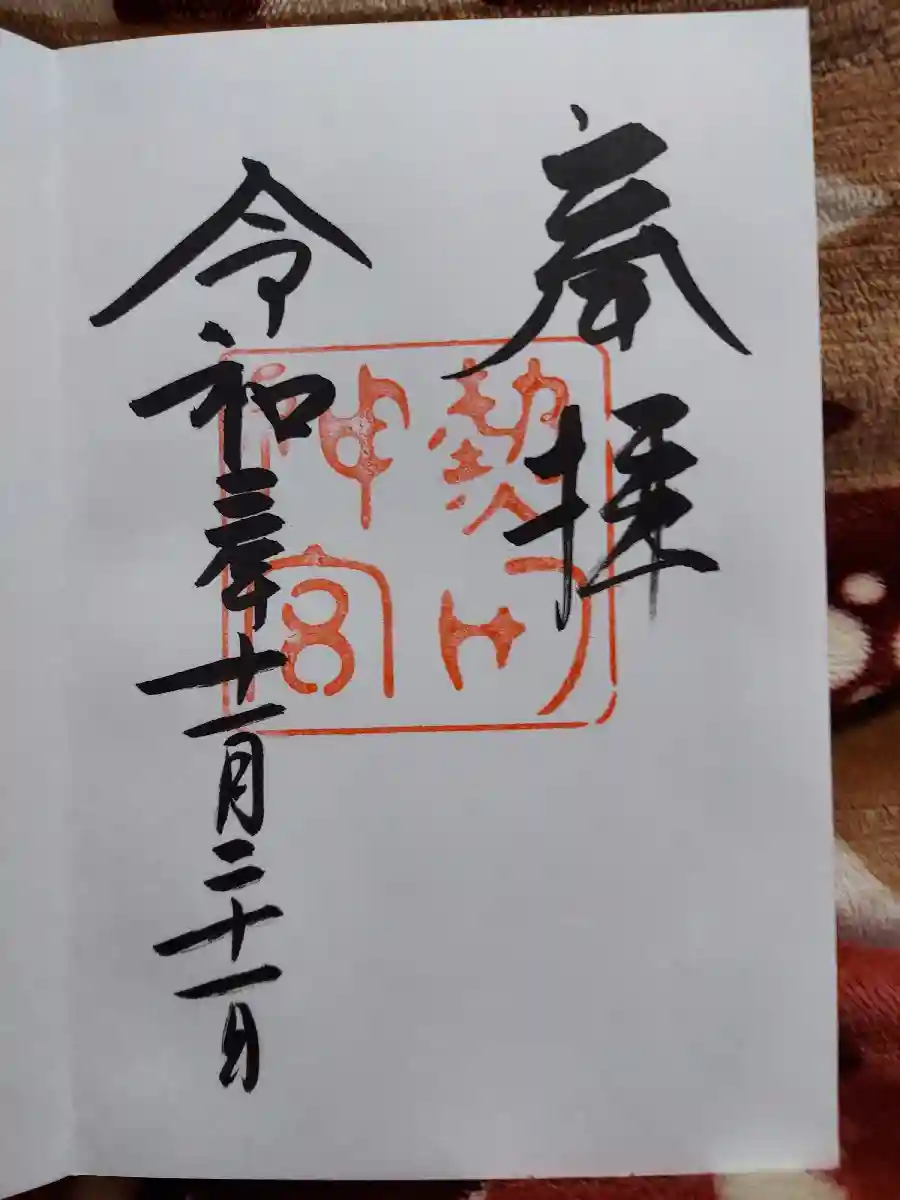 奉拝
熱田
神宮
令和三年十一月二十一日